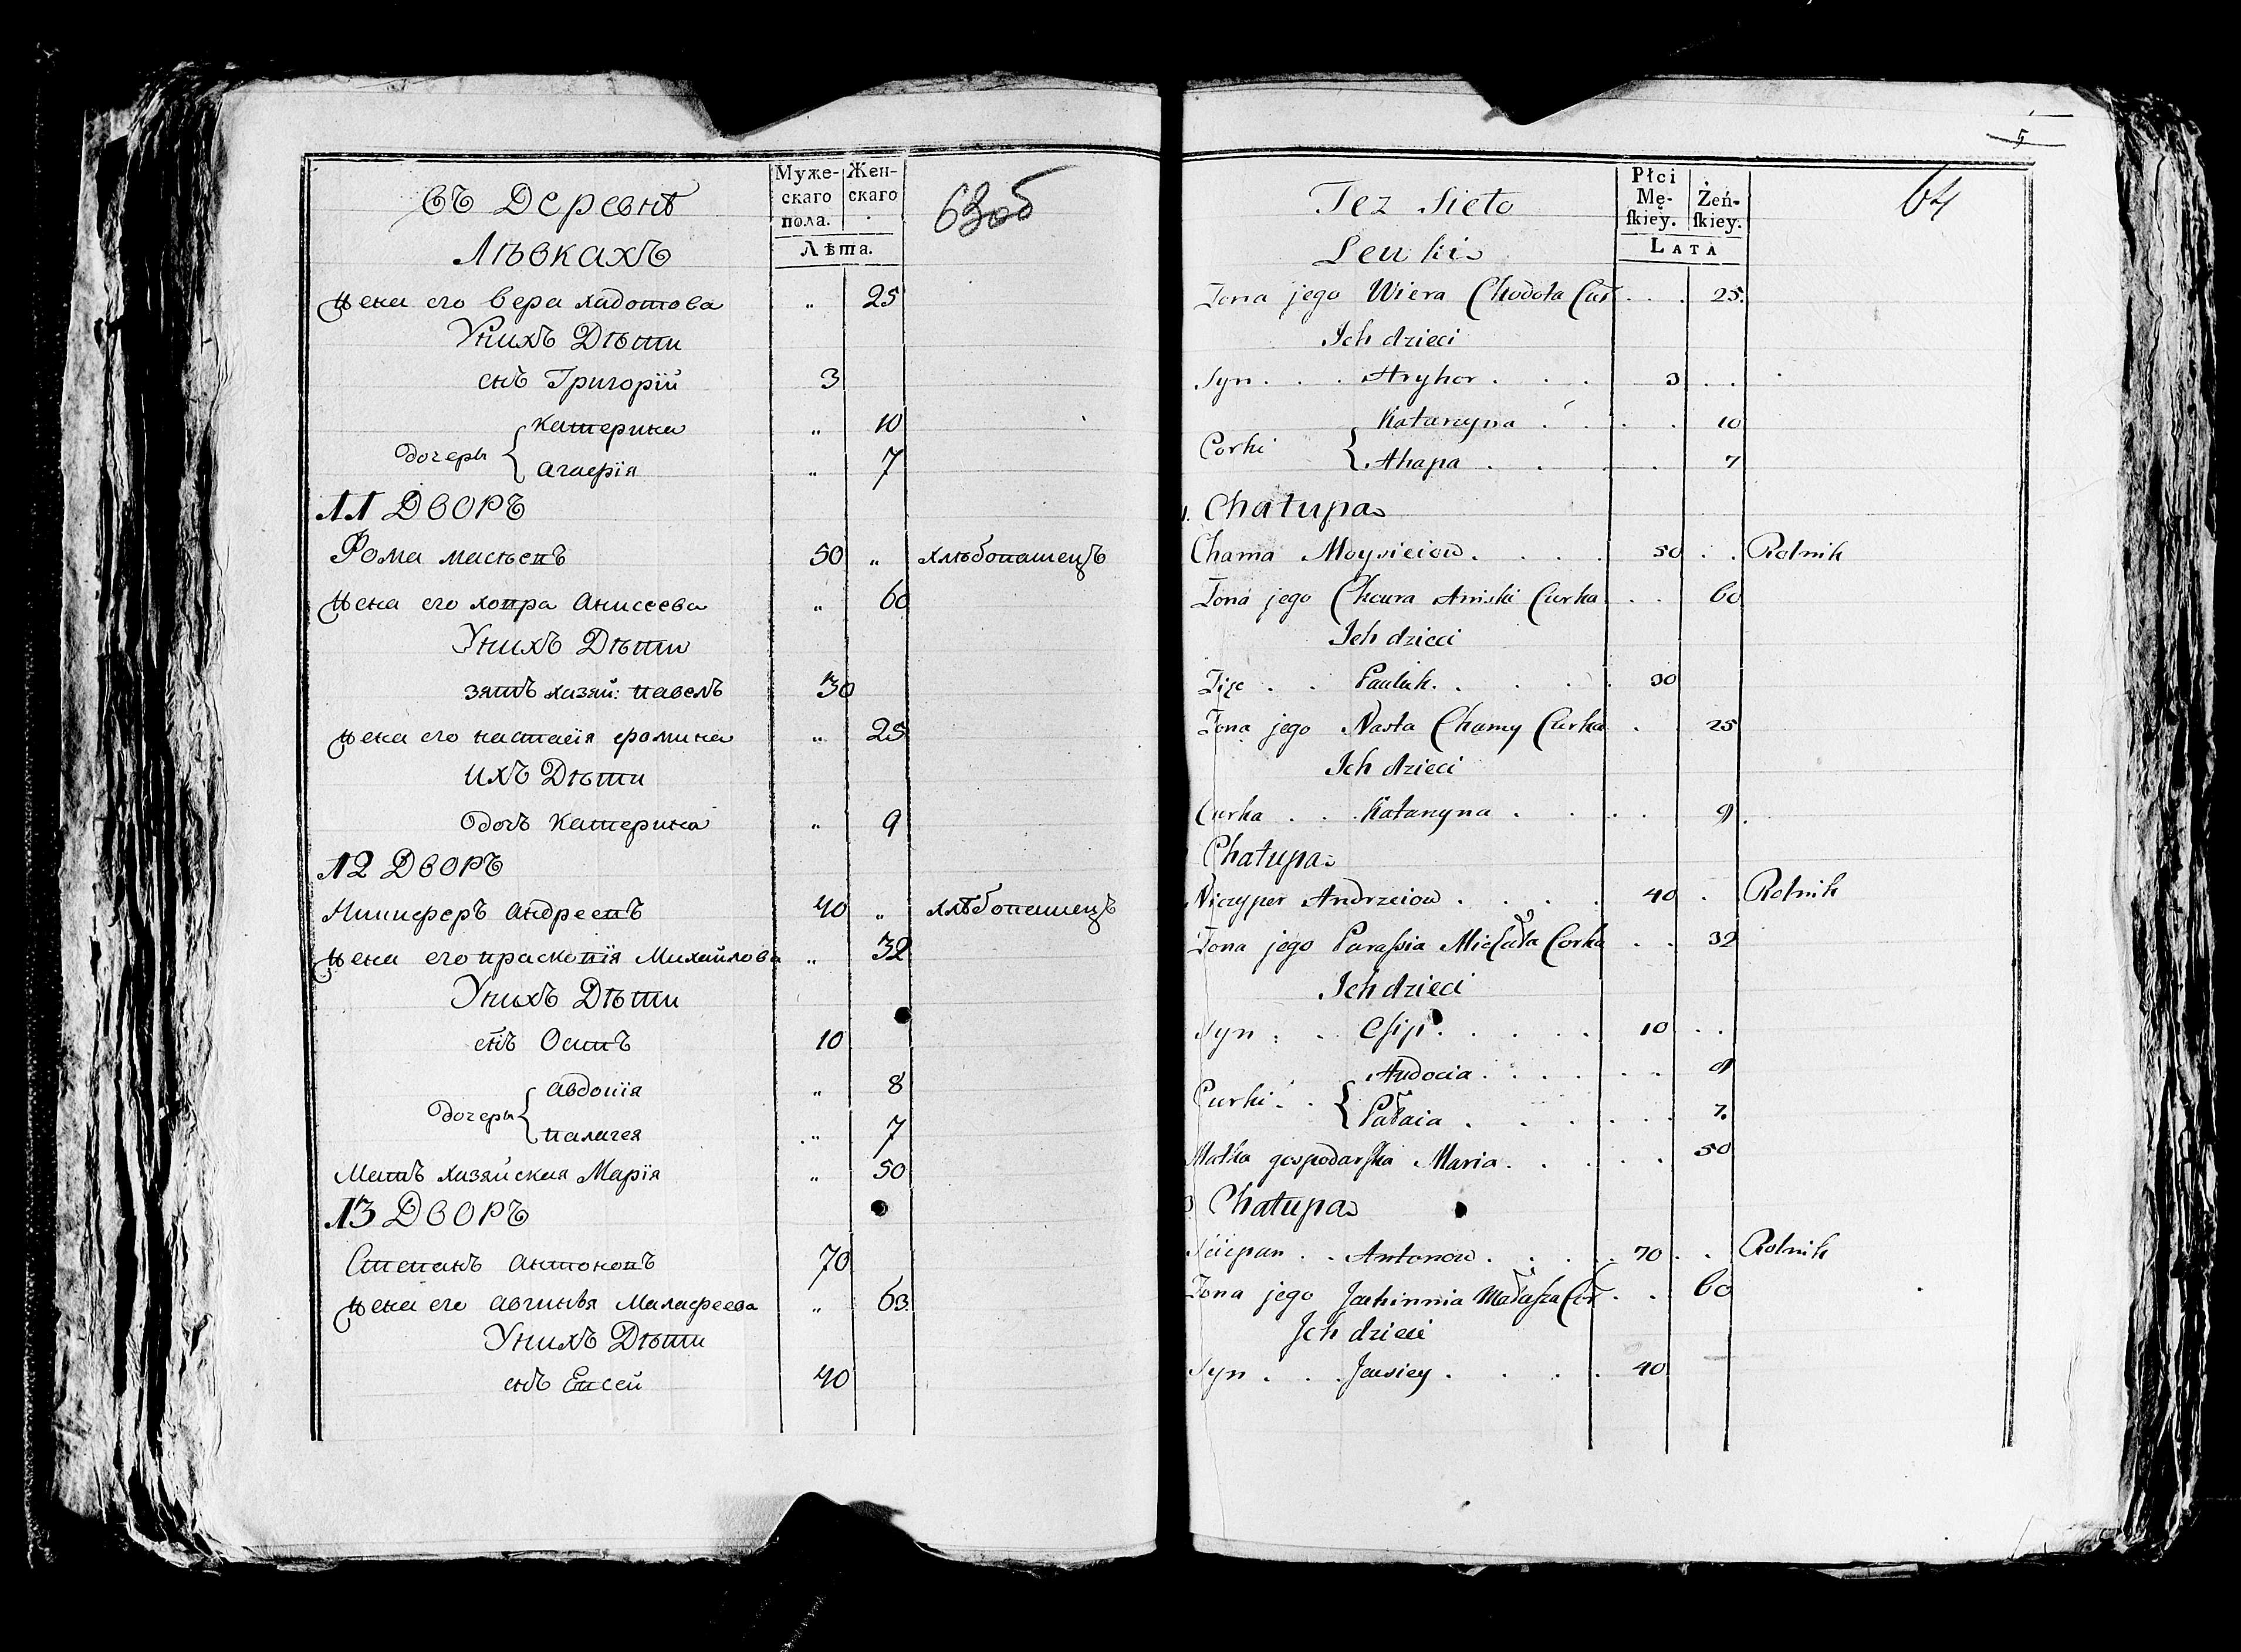 въ Деревнѣ
Муже-
скаго
пола.
Жен-
скаго
63об
Лѣвкахъ
Лѣта.
жена его Вера хадотова „ 25
Унихъ Дѣти
снъ Григорїй 3
дочеры { Катерина „ 10
агафїя „ 7
11 Дворъ
Фома 50 „ хлѣбопашецъ
жена его хопра Анисеева „ 60
Унихъ Дѣти
зять хазяй: павелъ 30
жена его настасїя фомина „ 25
ихъ Дѣти
дочь Катерина „ 9
12 Дворъ
Ничиферъ андреевъ 40 „ хлѣбопашецъ
жена его праскопїя Михайлова „ 32
Унихъ Дѣти
снъ Осипъ 10
дочеры { авдопїя „ 8
палагея „ 7
Мать хазяйская Марїя „ 50
13 Дворъ
Степанъ антоновъ 70
жена его авгинья Малафеева „ 63
Унихъ Дѣти
снъ Евсей 40
5
Tez Sieło
Płci
Mę-
ſkiey.
Żeń-
ſkiey.
64
Leuki
LATA
Żona jego Wiera Chodota Cur . . 25.
Ich dzieci
Syn . . . Hryhor . . . 3 . .
Corki { Katarzyna . . . . 10
Ahapa . . . . 7
Chałupa
Chama Moysieiow . . . . 50 . . Rolnik
Żona jego Cheura Aniski Curka . . 60
Ich dzieci
Zięc . . Pauluk. . . . . 30
Żona jego Nasta Chamy Curka . . 25
Ich dzieci
Curka . . . Katarzyna . . . . 9.
Chałupa
Niczyper Andrzeiow . . . . 40 . Rolnik
Żona jego Paraſsia Michała Corka . . 32
Ich dzieci
Syn . . Osip . . . . . 10 . .
Curki . . { Audocia . . . . . . 8
Pałaia . . . . . . 7.
Matka gospodarſka Maria . . . . . 50
Chałupa
Sciepan . . Antonow . . . . 70 . . Rolnik
Żona jego Jauhinnia Małaſza Cor . . 60
Ich dzieci
Syn . . . Jausiey . . . . 40